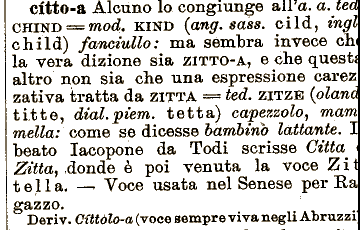 citto-a Alcuno lo congiunge all'a. a. ted
CHIND = mod. KIND (ang. sass. cild, ingl
child) fanciullo: ma sembra invece che
la vera dizione sia ZITTO-A, e che questa
altro non sia che una espressione carez
zativa tratta da ZITTA = ted. ZITZE (oland
titte, dial. piem. tetta) capezzolo, mam
mella: come se dicesse bambino lattante. I
beato Iacopone da Todi scrisse Citta e
Zitta, donde è poi venuta la voce Zit
tella. — Voce usata nel Senese per Ra
gazzo.
Deriv. Cittolo-a (voce sempre viva negli Abruzzi